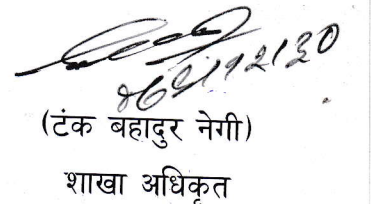 (टंक बहादुर नेगी)
शाखा अधिकृत